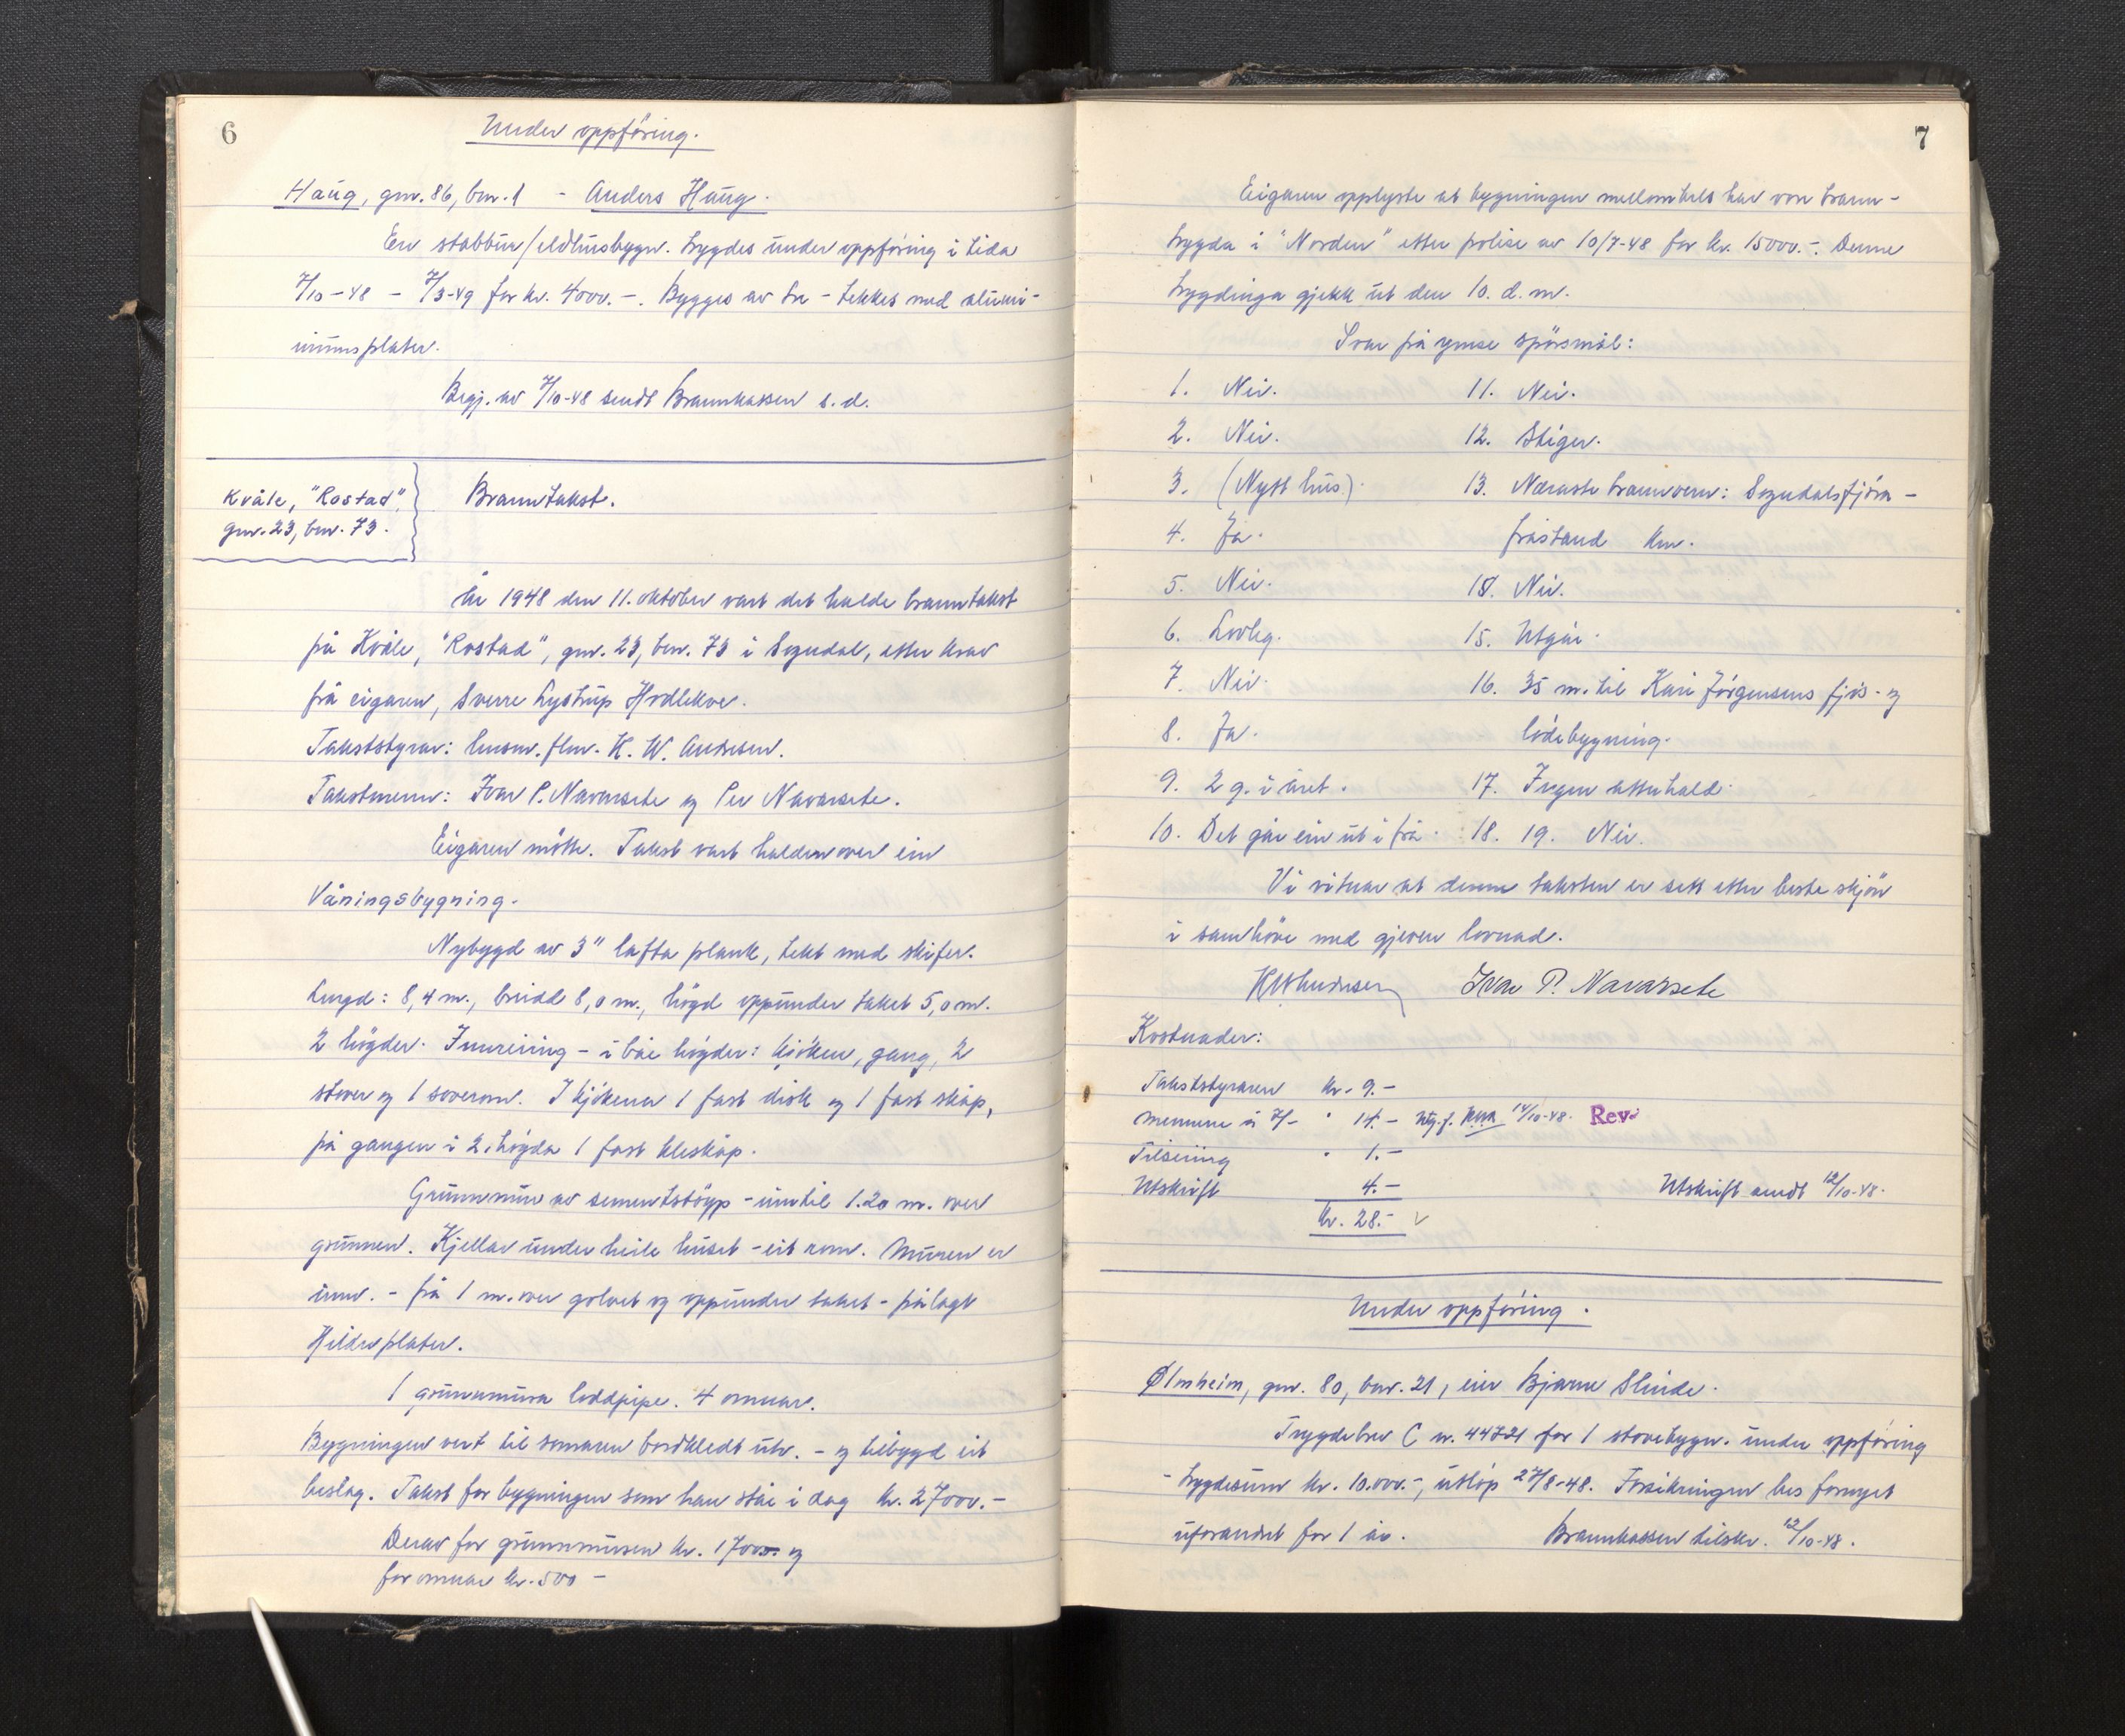 6
Under oppföring.
Haug, gnr. 86, bnr. 1 - Anders Haug.
En stabbur/eldhusbygn. trygdes under oppföring i tida
7/10-48 - 7/3-49 for kr. 4000.-. Bygges av tre - tekkes med alumi-
niumsplater.
Begj. av 7/10-48 sendt Brannkassen s.d.
Kvåle, "Rostad",
gnr. 23, bnr. 73.
Branntakst.
År 1948 den 11. oktober vart det halde branntakst
på Kvåle, "Rostad", gnr. 23, bnr. 73 i Sogndal, etter krav
frå eigaren, Sverre Lystrup Hodlekve.
Takststyrar: lensm. flm. H. W. Andresen.
Takstmenn: Ivar P. Navarsete og Per Navarsete.
Eigaren mötte. Takst vart halden over ein
Våningsbygning.
Nybygd av 3" lafta plank, tekt med skifer.
Lengd: 8,4 m., breidd 8,0 m., högd oppunder taket 5,0 m.
2 högder. Innreiing - i båe högder: kjöken, gang, 2
stover og 1 soverom. I kjökena 1 fast disk og 1 fast skåp,
på gangen i 2. högda 1 fast kleskåp.
Grunnmur av sementstöyp - inntil 1.20 m. over
grunnen. Kjellar under heile huset - eit rom. Muren er
innv. - frå 1 m. over golvet og oppunder taket - pålagt
Hildreplater.
1 grunnmura loddpipe. 4 omnar.
Bygningen vert til somaren bordkledt utv. - og tilbygd eit
beslag. Takst for bygningen som han står i dag kr. 27000.-
Derav for grunnmuren kr. 1700.- og
for omnar kr. 500 -
7
Eigaren opplyste at bygningen mellombels har vore brann-
trygda i "Norden" etter polise av 10/7-48 for kr. 15000.-. Denne
trygdinga gjekk ut den 10. d.m.
Svar på ymse spörsmål:
1. Nei.
2. Nei.
3. (Nytt hus).
4. Ja.
5. Nei.
6. Lovleg.
7. Nei.
8. Ja.
9. 2 g. i året.
10. Det går ein ut i frå.
11. Nei.
12. Stiger.
13. Næraste brannvern: Sogndalsfjöra -
fråstand km.
14. Nei.
15. Utgår.
16. 35 m. til Kari Jörgensens fjös- og
lödebygning.
17. Ingen atterhald.
18. 19. Nei.
Vi vitnar at denne taksten er sett etter beste skjön
i samhöve med gjeven lovnad.
HWAndresen Ivar P. Navarsete
Kostnader:
Takststyraren kr. 9.-
mennene à 7/- " 14.- Utg. f. 14/10-48. Rev.
Tilseiing " 1.-
Utskrift 4.- Utskrift sendt 12/10-48.
kr. 28.-
Under oppföring.
Ølmheim, gnr. 80, bnr. 21, eier Bjarne Slinde.
Trygdebrev C nr. 44721 for 1 stovebygn. under oppföring
- trygdesum kr. 10.000.-, utlöp 27/8-48. Forsikringen bes fornyet
uforandret for 1 år. Brannkassen tilskr. 12/10-48.